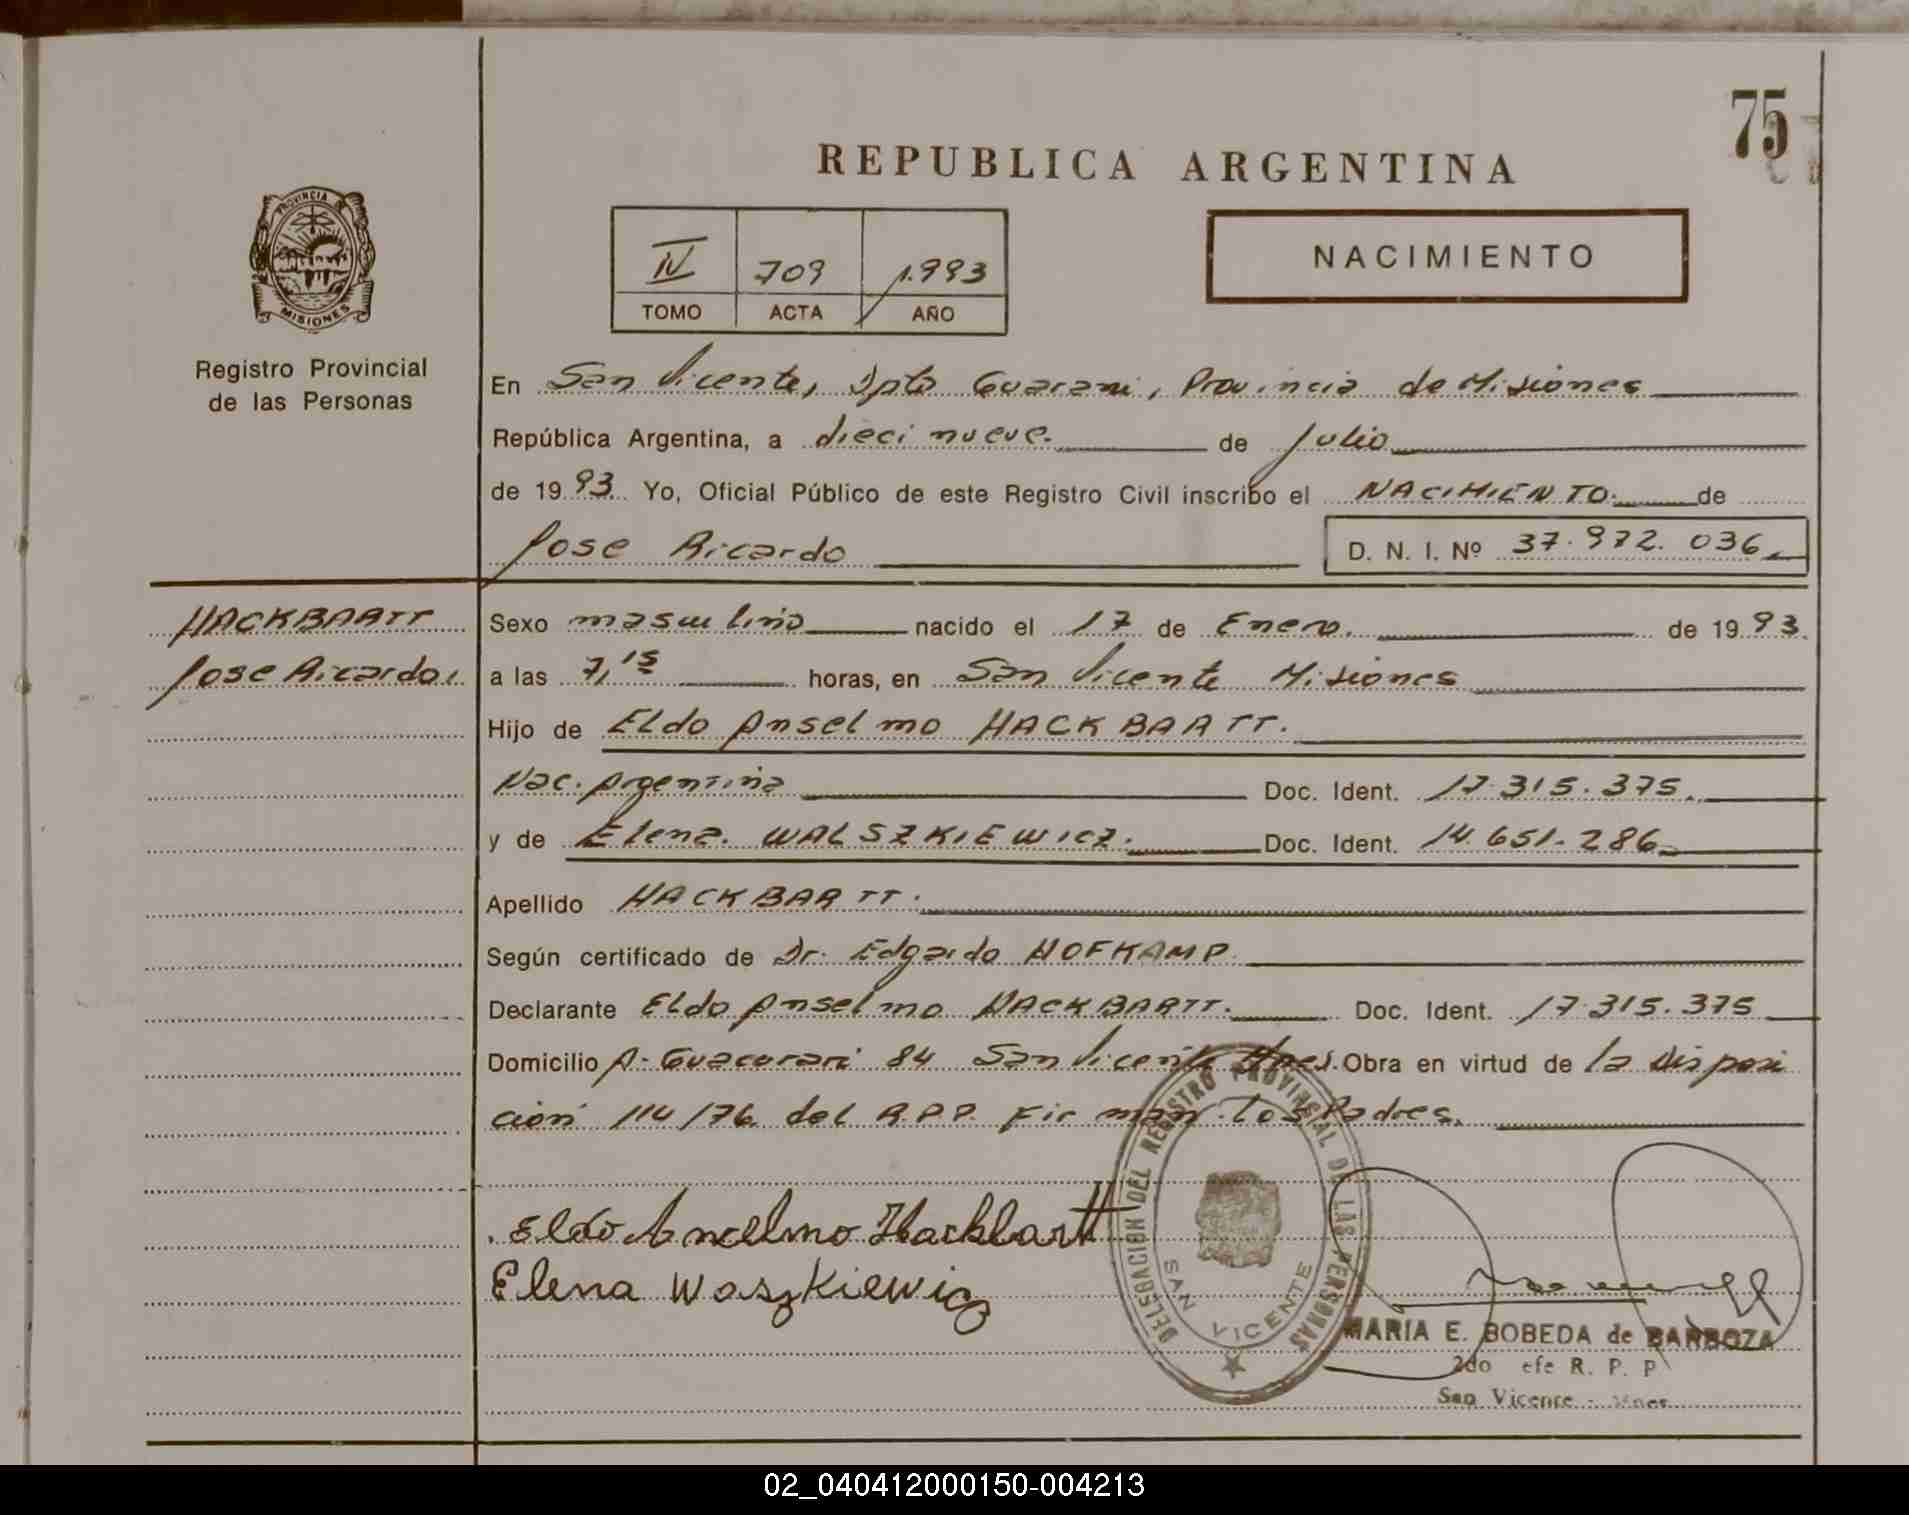 75
REPUBLICA ARGENTINA
IV 709 1.993
TOMO ACTA AÑO
NACIMIENTO
PROVINCIA DE
MISIONES
Registro Provincial
de las Personas
En San Vicente, Dpto Guarani, Provincia de Misiones
República Argentina, a dieci nueve. de Julio
de 19 93. Yo, Oficial Público de este Registro Civil inscribo el NACIMIENTO. de
Jose Ricardo D. N. I. Nº 37.972.036
HACKBARTT
Jose Ricardo.
Sexo masculino nacido el 17 de Enero. de 19 93.
a las 7,15 horas, en San Vicente Misiones
Hijo de Eldo Anselmo HACKBARTT.
Nac. Argentina Doc. Ident. 17.315.375.
y de Elena. WALSZKIEWICZ. Doc. Ident. 14.651.286
Apellido HACKBARTT.
Según certificado de Dr. Edgardo HOFKAMP.
Declarante Eldo Anselmo HACKBARTT. Doc. Ident. 17.315.375
Domicilio A. Guacurari 84 San Vicente Mnes. Obra en virtud de la Disposi
ción 114/76 del R.P.P. Firman los Padres.
Eldo Ancelmo Hackbartt
Elena Waszkiewicz
DELEGACION DEL REGISTRO PROVINCIAL DE LAS PERSONAS
SAN VICENTE
MARIA E. BOBEDA de BARBOZA
2do efe R. P. P
San Vicente - Mnes.
02_040412000150-004213